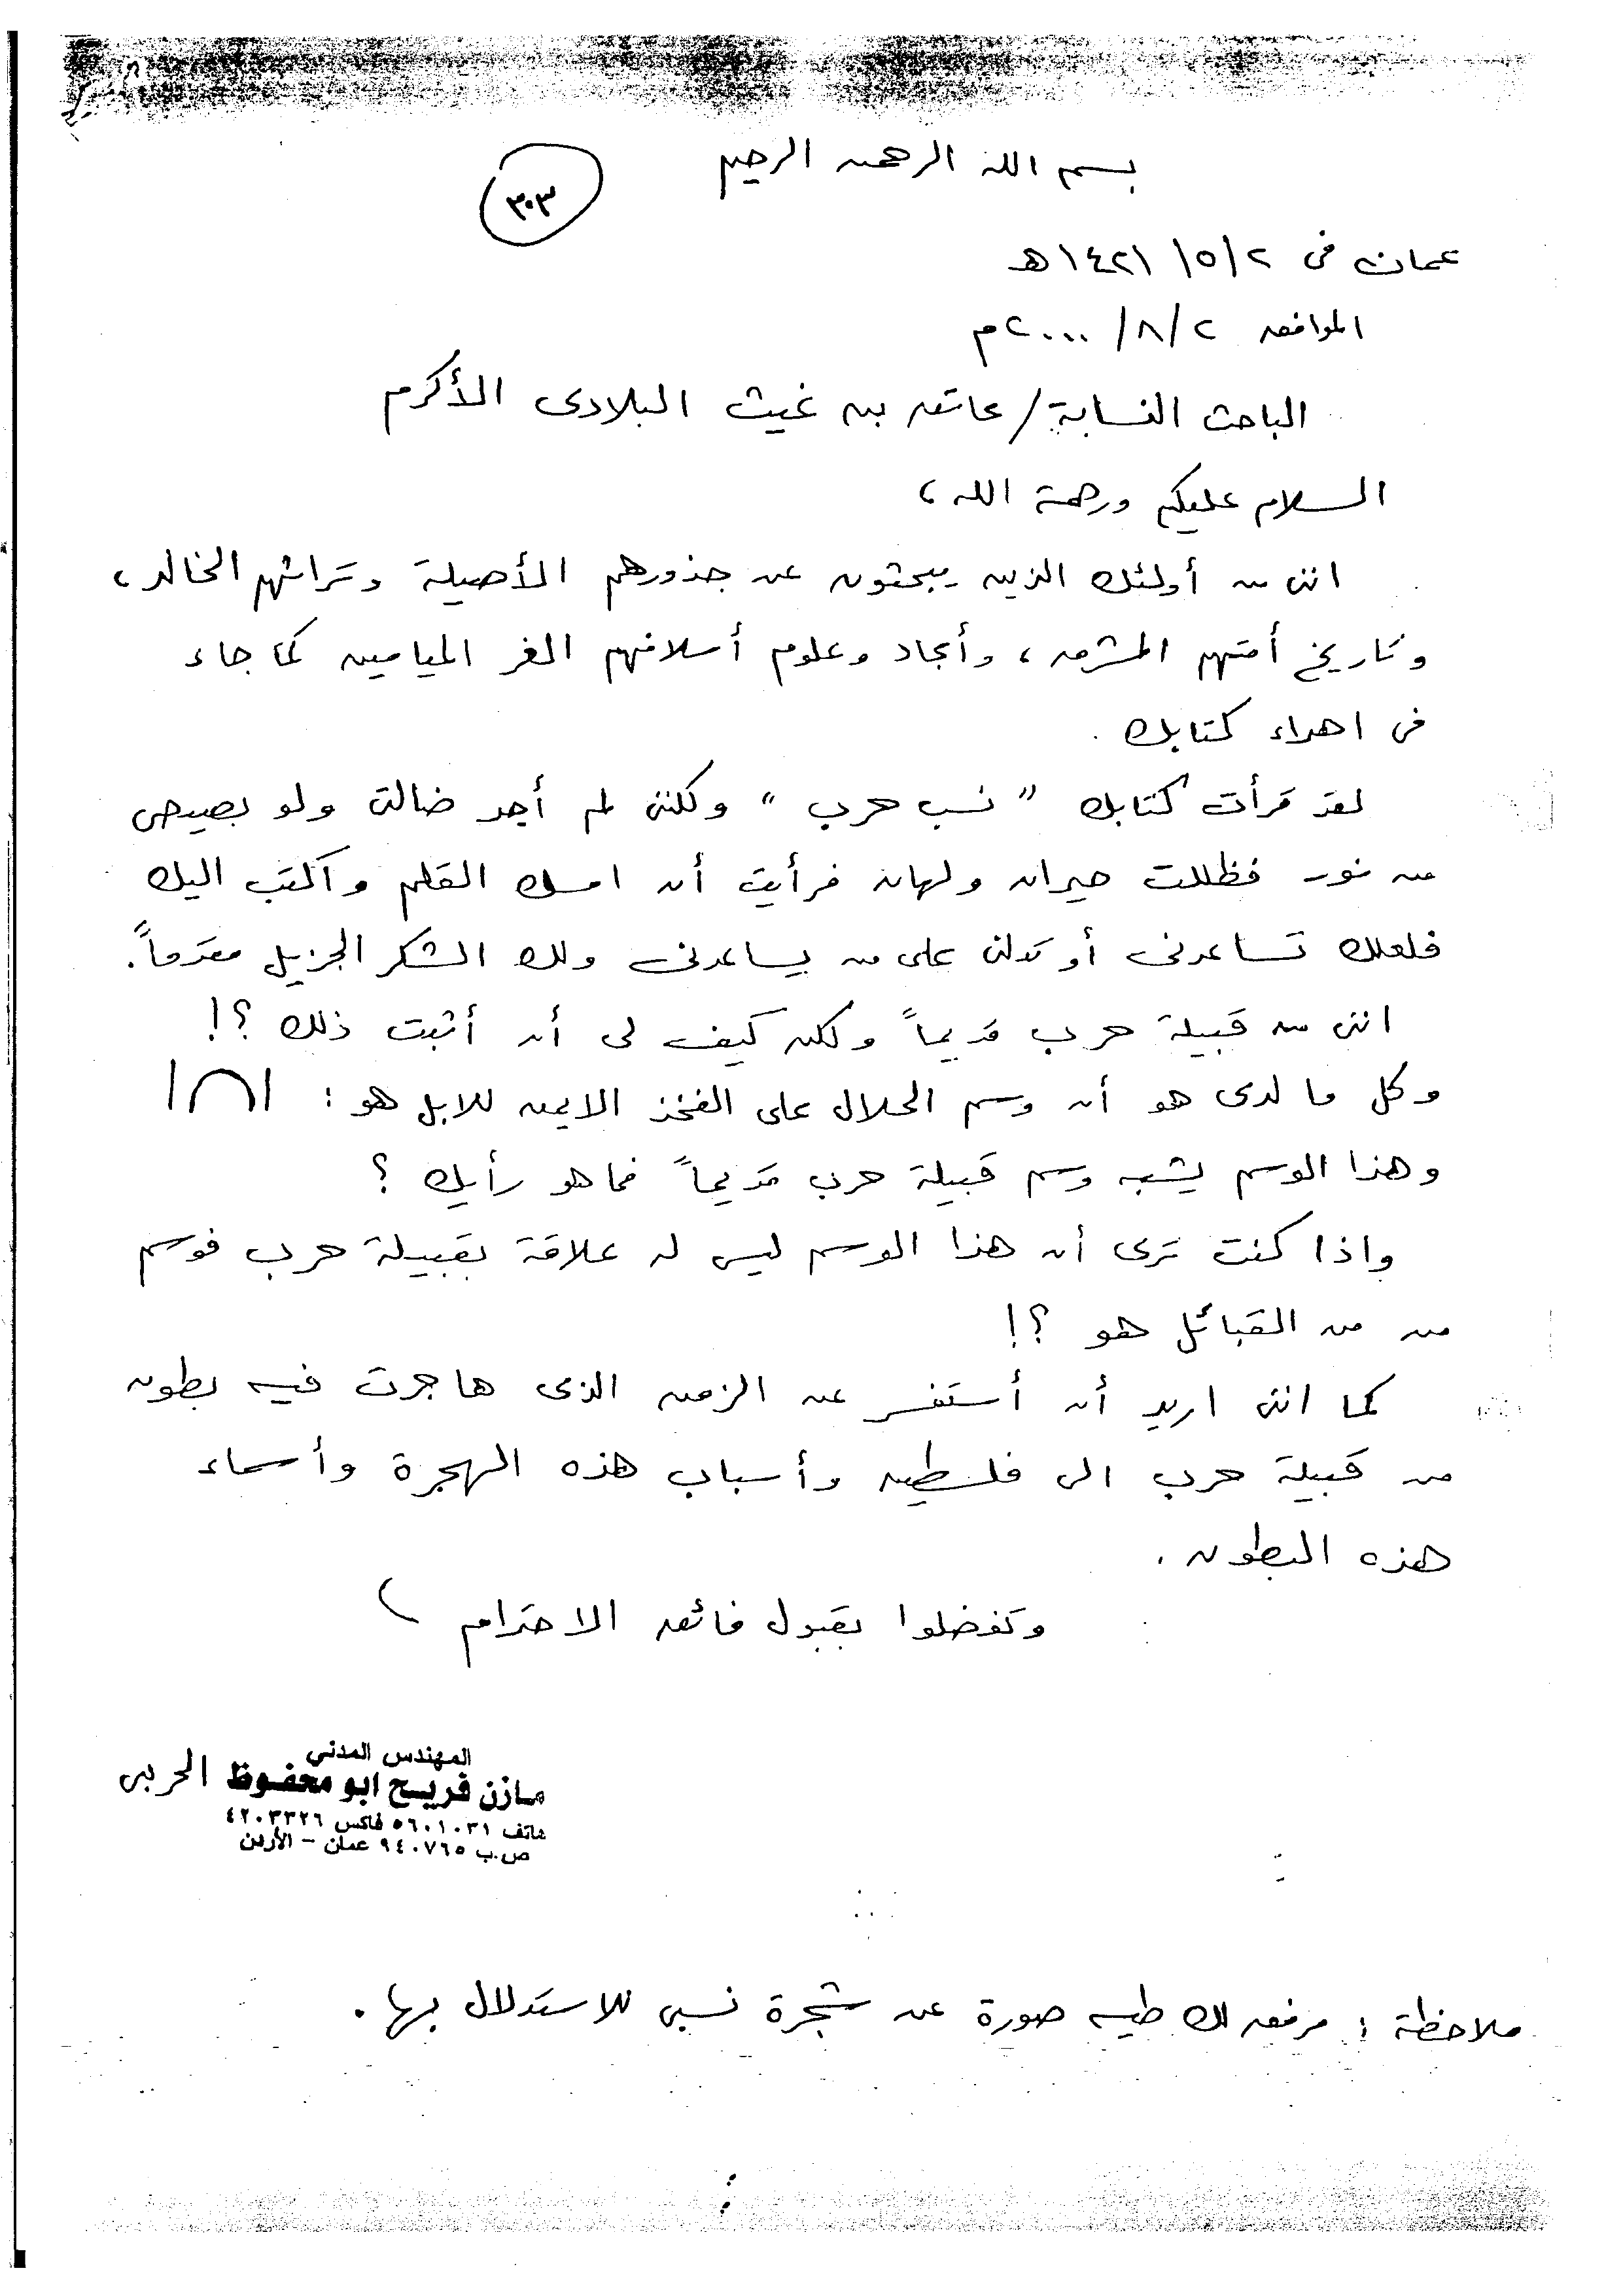 بسم الله الرحمن الرحيم
٣٠٣
عمان في ٢/٥/١٤٢١هـ
الموافق ٢/٨/٢٠٠٠م
الباحث النسابة/ عاتق بن غيث البلادى الأكرم
السلام عليكم ورحمة الله ،
اننى من أولئك الذين يبحثون عن جذورهم الأصيلة وتراثهم الخالد ،
وتاريخ أمتهم المشرق ، وأمجاد وعلوم أسلافهم الغر الميامين كما جاء
فى اهداء كتابك .
لقد قرأت كتابك " نسب حرب " ولكننى لم أجد ضالتى ولو بصيص
من نور فظللت حيران ولهان فرأيت أن امسك القلم وأكتب اليك
فلعلك تساعدنى أو تدلنى على من يساعدنى ولك الشكر الجزيل مقدماً .
اننى من قبيلة حرب قديماً ولكن كيف لى أن أثبت ذلك ؟!
وكل ما لدى هو أن وسم الحلال على الفخذ الايمن للابل هو :
وهذا الوسم يشبه وسم قبيلة حرب قديماً فما هو رأيك ؟
واذا كنت ترى أن هذا الوسم ليس له علاقة بقبيلة حرب فوسم
من من القبائل هو ؟!
كما اننى اريد أن أستفسر عن الزمن الذى هاجرت فيه بطون
من قبيلة حرب الى فلسطين وأسباب هذه الهجرة وأسماء
هذه البطون .
وتفضلوا بقبول فائق الاحترام
المهندس المدني
مازن فريح ابو محفوظ الحربى
هاتف ٥٦٠١٠٣١ فاكس ٤٢٠٣٣٢٦
ص.ب ٩٤٠٧٦٥ عمان - الأردن
ملاحظة : مرفق لك طيه صورة عن شجرة نسبى للاستدلال بها .